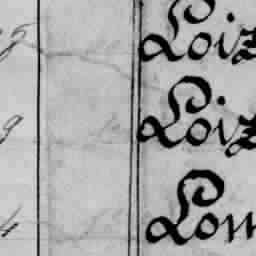 5 Loiz
9 Loiz
4 Lom